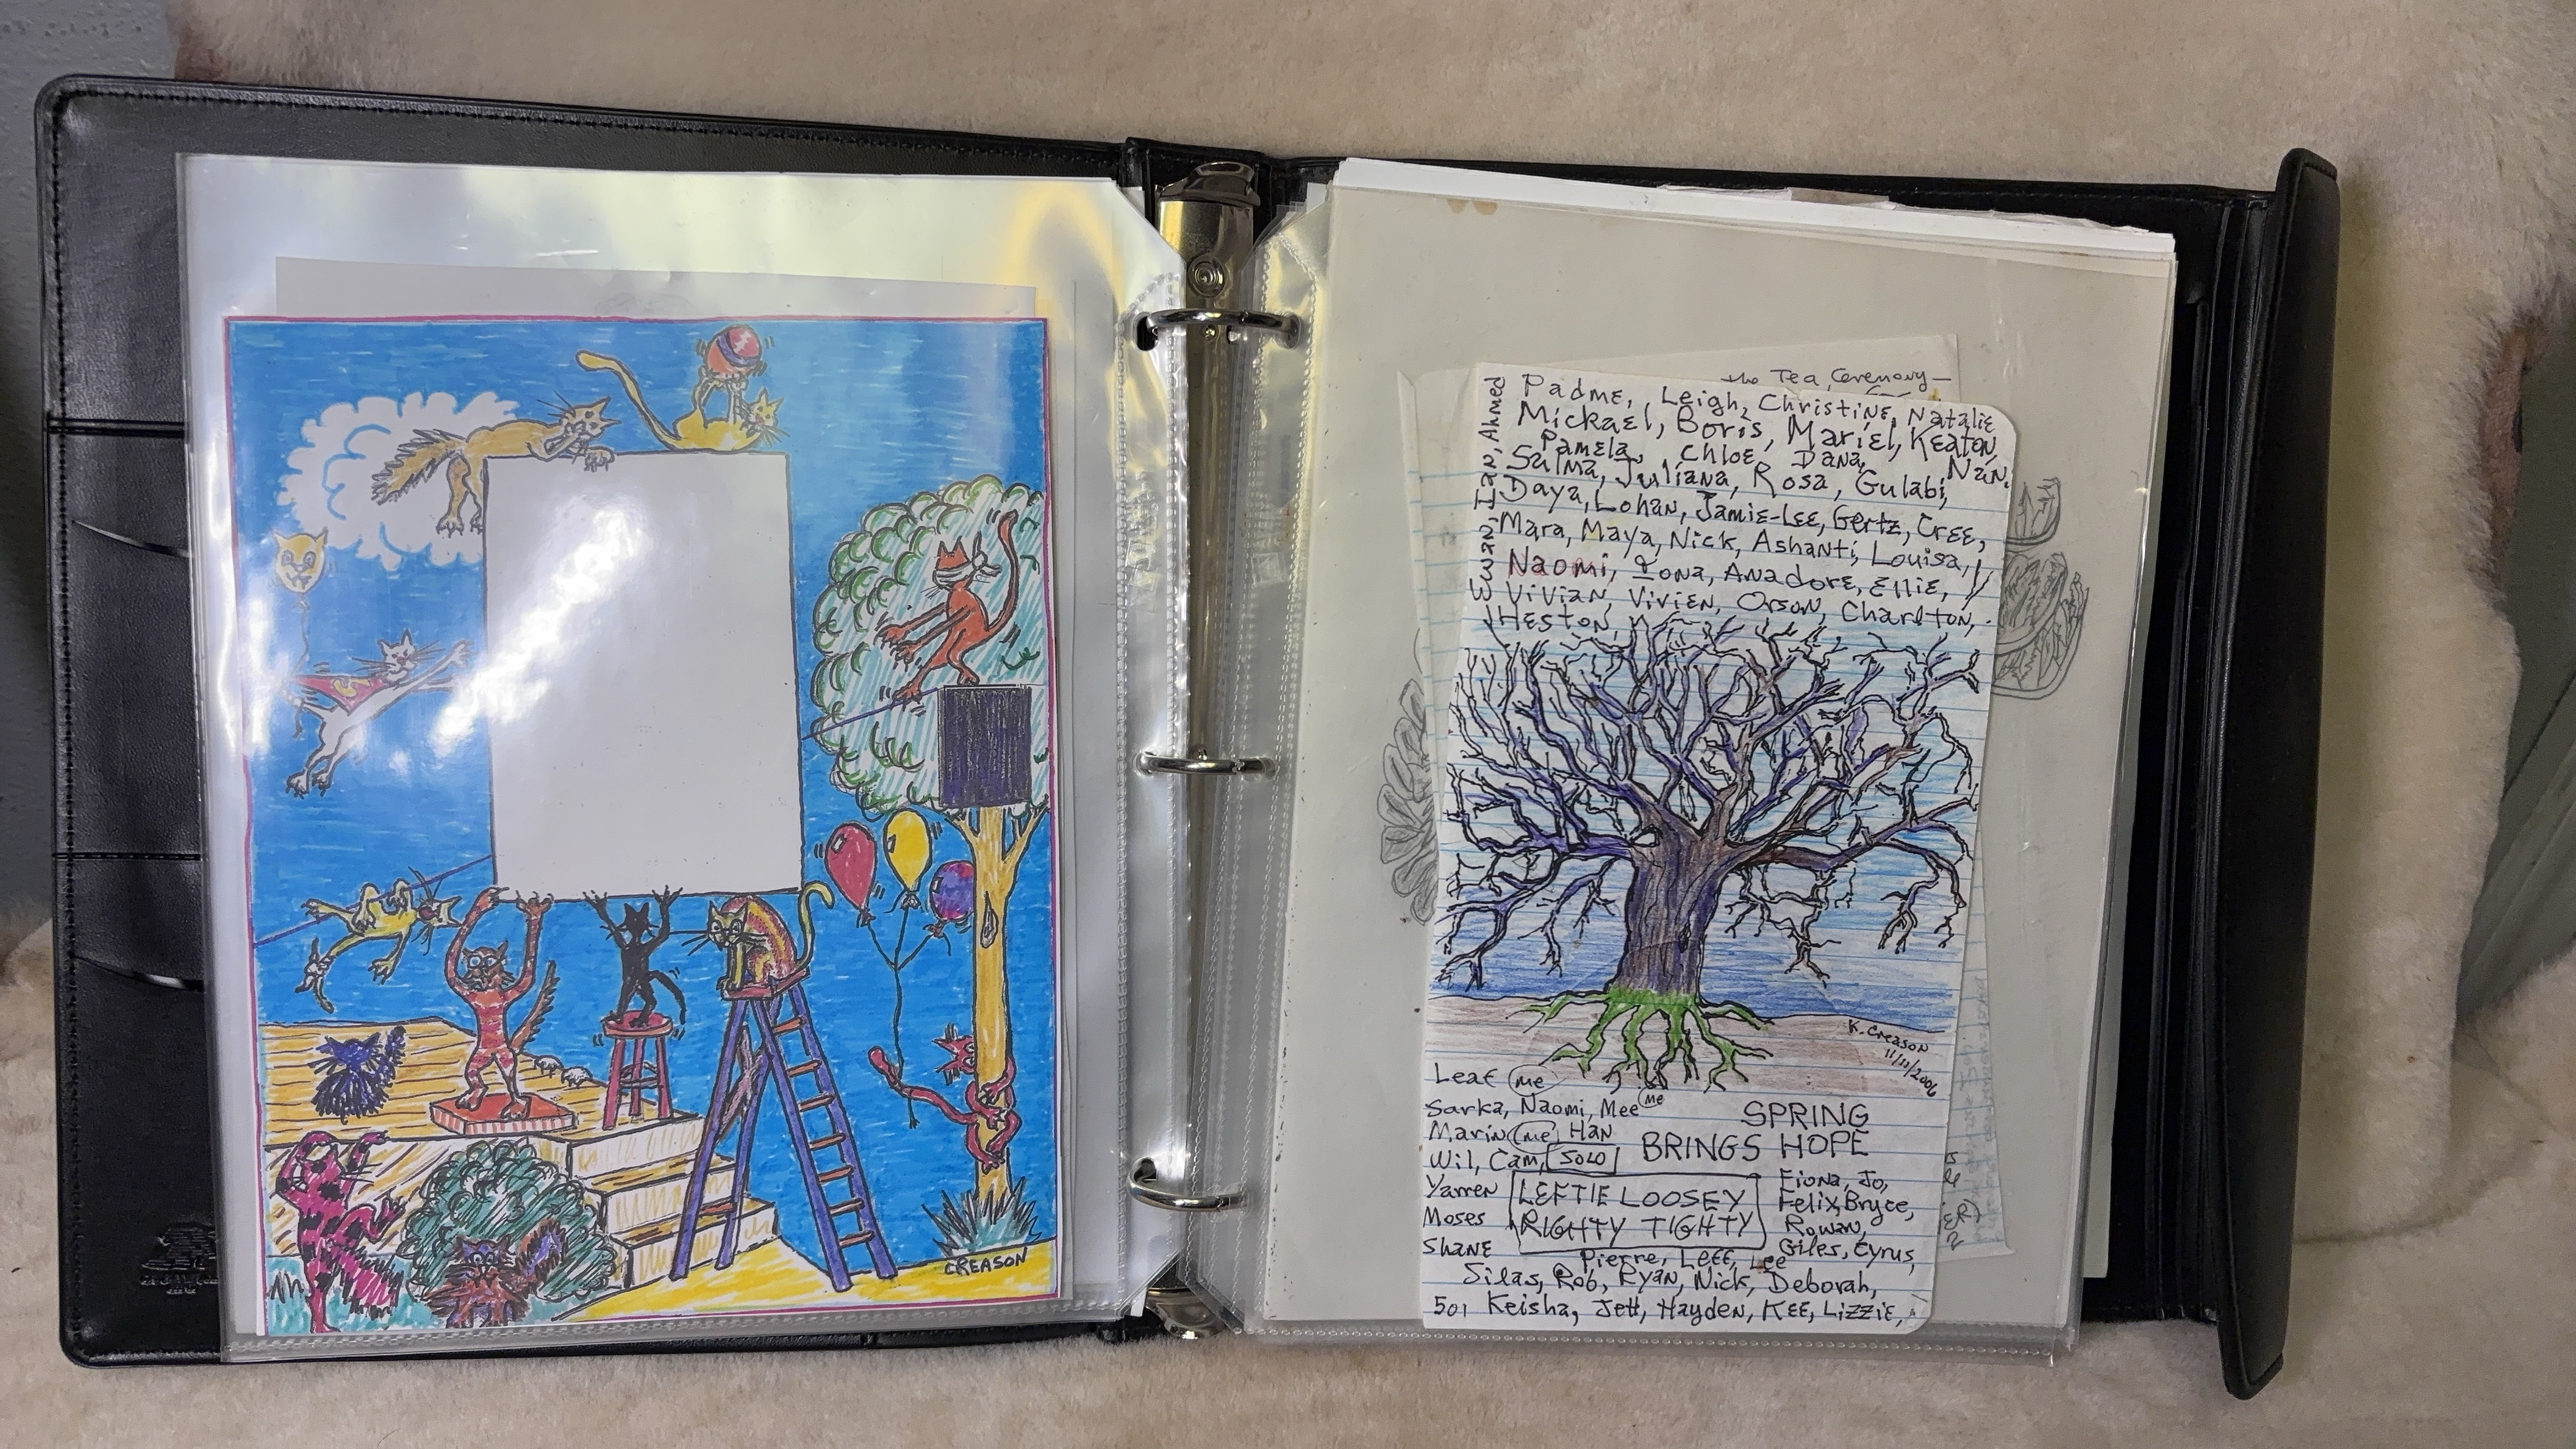 CREASON
the Tea Ceremony—
Ewan, Ian, Ahmed
Padme, Leigh, Christine, Natalie
Mickael, Boris, Mariel, Keaton,
Pamela, Chloe, Dana, Nan.
Salma, Juliana, Rosa, Gulabi,
Daya, Lohan, Jamie-Lee, Gertz, Cree,
Mara, Maya, Nick, Ashanti, Louisa,
Naomi, Iona, Anadore, Ellie,
Vivian, Vivien, Orson, Charlton,
Heston,
K. Creason
11/11/2006
Leaf me
Sarka, Naomi, Mee me
Marin me, Han
Wil, Cam, SOLO
Yarren
Moses
Shane
SPRING
BRINGS HOPE
LEFTIE LOOSEY
RIGHTY TIGHTY
Fiona, Jo,
Felix, Bryce,
Rowan,
Giles, Cyrus,
Pierre, Leff, Lee
Silas, Rob, Ryan, Nick, Deborah,
501 Keisha, Jett, Hayden, Kee, Lizzie,